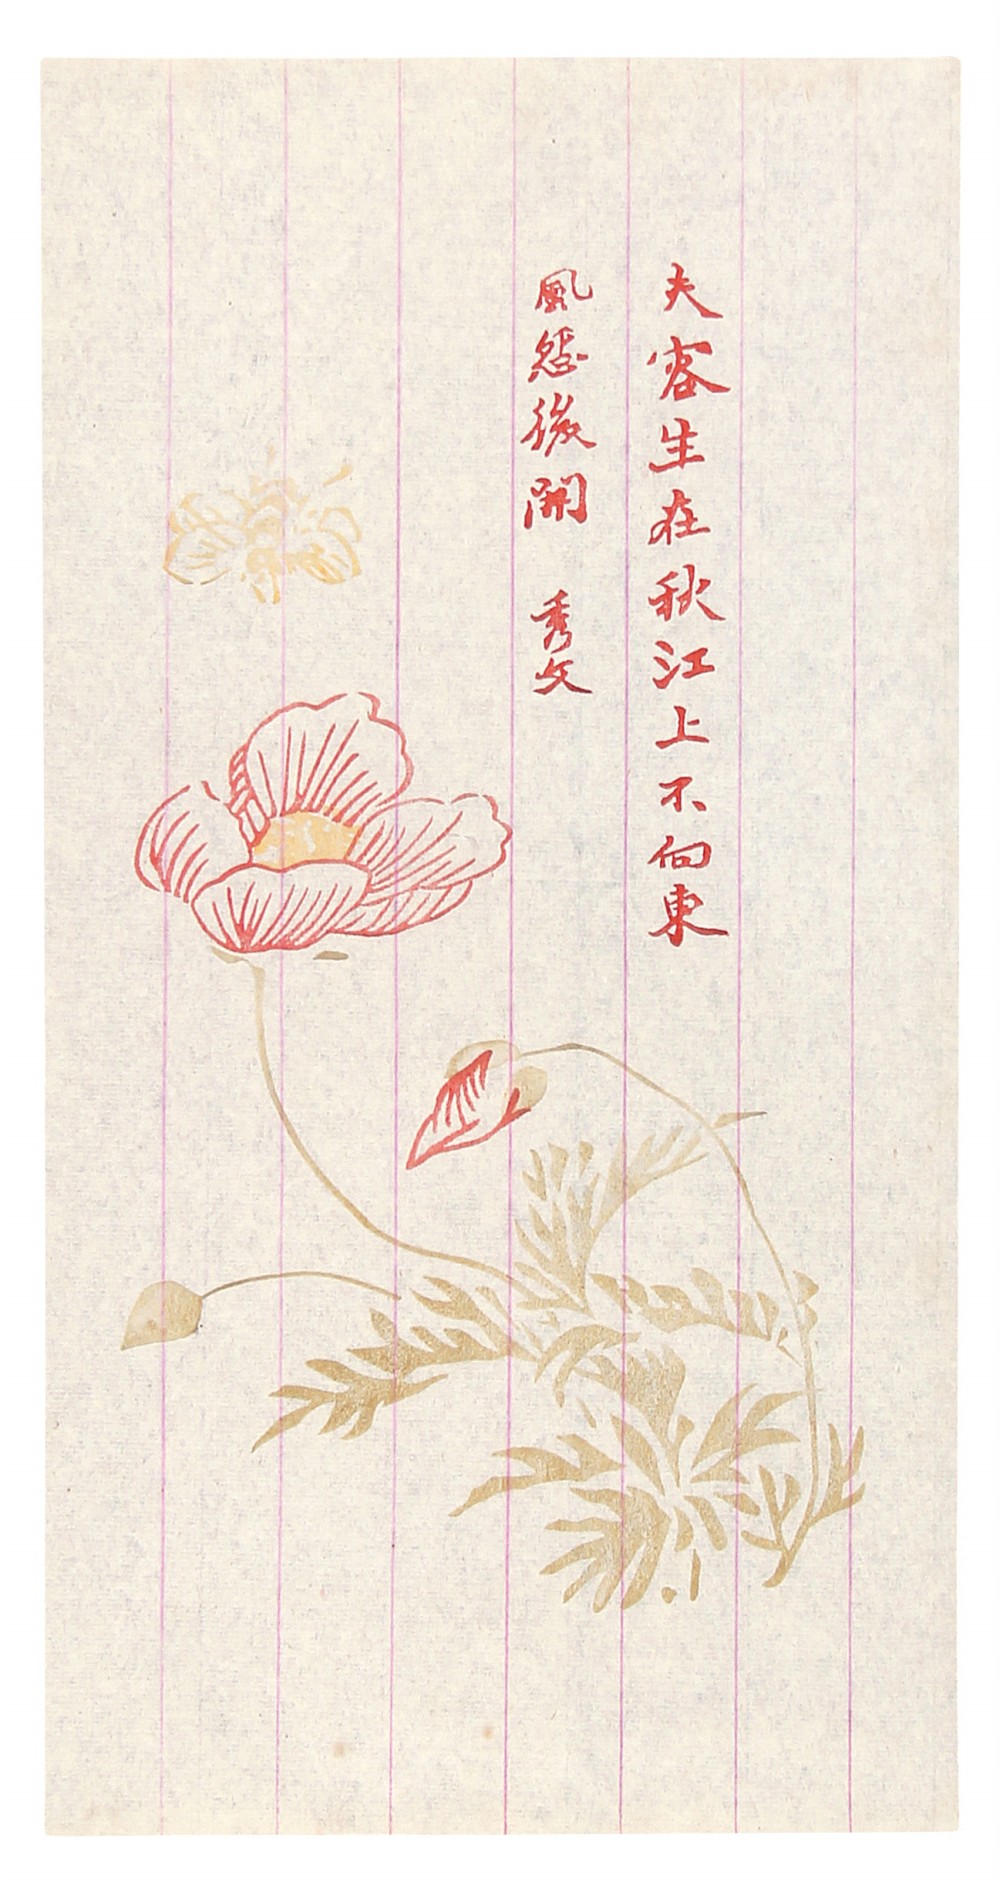 夫容生在秋江上不向東
風怨後開 秀文